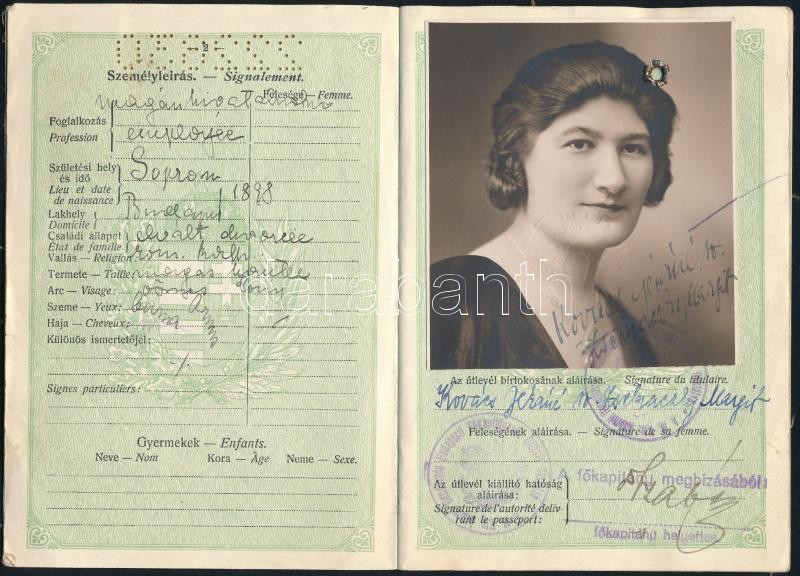 — 2 —
Személyleírás. — Signalement.
Feleségé — Femme.
magánhivatalnok
Foglalkozás
Profession
employée
Születési hely
és idő
Lieu et date
de naissance
Sopron
1898
Lakhely
Domicile
Budapest
Családi állapot
État de famille
elvált divorcée
Vallás — Religion:
róm. kath.
Termete — Taille:
magas
Arc — Visage:
Szeme — Yeux:
barna
Haja — Cheveux:
Különös ismertetőjel:
Signes particuliers:
Gyermekek — Enfants.
Neve — Nom Kora — Âge Neme — Sexe.
darabanth
Az útlevél birtokosának aláírása. — Signature du titulaire.
Kovács Margit
Feleségének aláírása. — Signature de sa femme.
A főkapitány megbizásából:
Az útlevél kiállító hatóság
aláírása:
Signature de l'autorité déliv-
rant le passeport:
Szabó
főkapitány helyettes